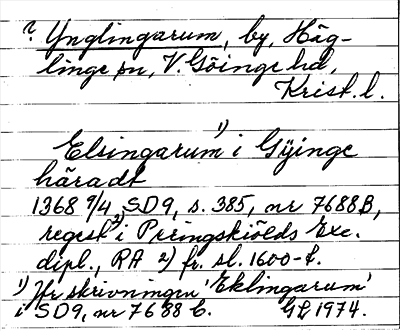 ? Ynglingarum, by, Häg-
linge sn, V. Göinge hd,
Krist. l.
Elsingarum¹) i Gÿinge
häradt
1368 9/4, SD9, s. 385, nr 7688B,
regest²) i Peringskiölds Exc.
dipl., RA 2) fr. sl. 1600-t.
1) Jfr skrivningen 'Eklingarum'
i SD9, nr 7688 C. GL 1974.